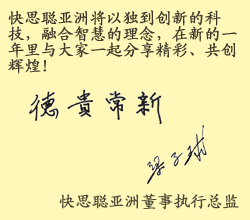 快思聪亚洲将以独到创新的科
技，融合智慧的理念，在新的一
年里与大家一起分享精彩、共创
辉煌！
德貴常新
快思聪亚洲董事执行总监